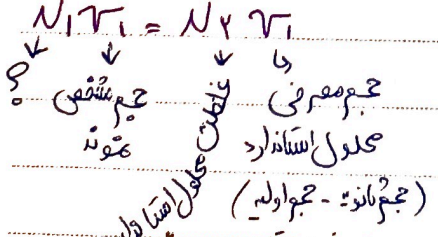 N₁V₁ = N₂ V₁
؟
حجم مشخص
نمونه
غلظت محلول استاندارد
حجم مصرفی
محلول استاندارد
(حجم ثانویه - حجم اولیه)